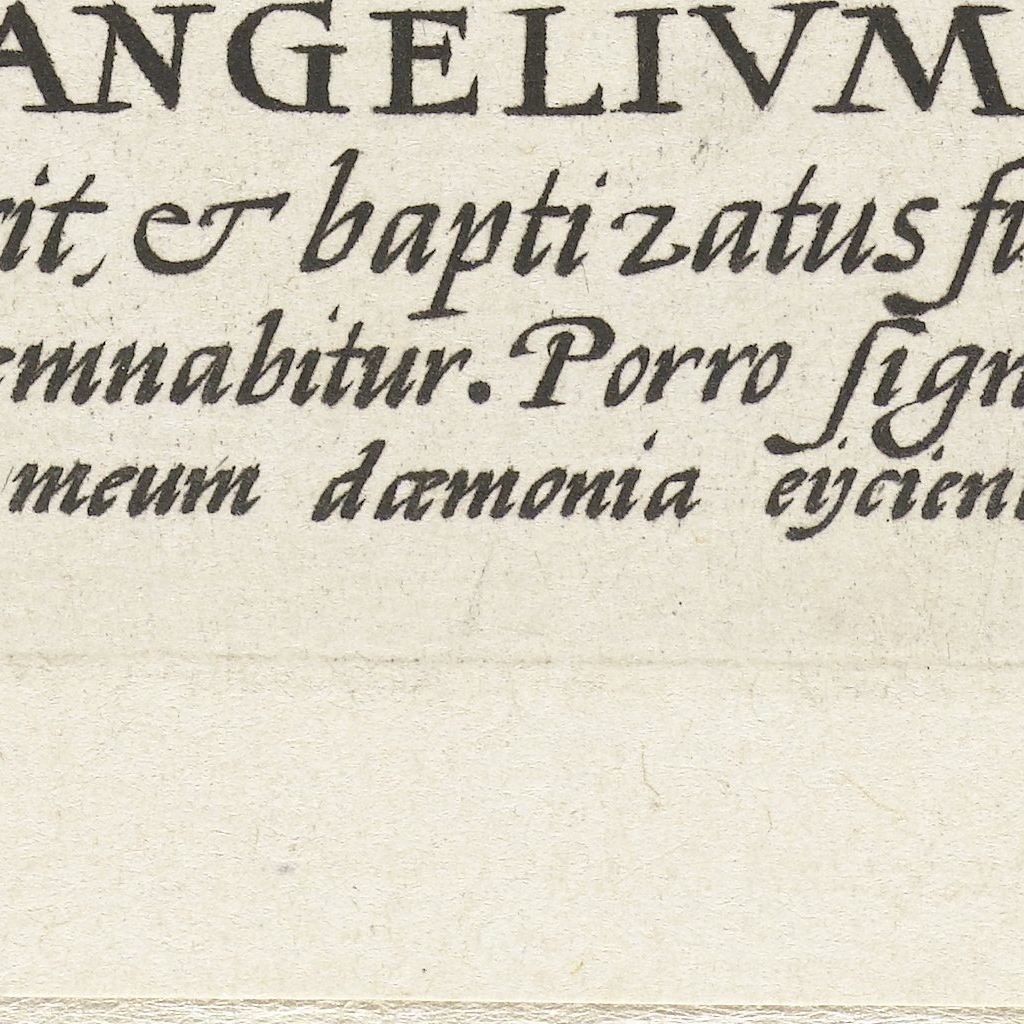 ANGELIVM
rit, & baptizatus fu
emnabitur. Porro ſign
meum dæmonia eijcient